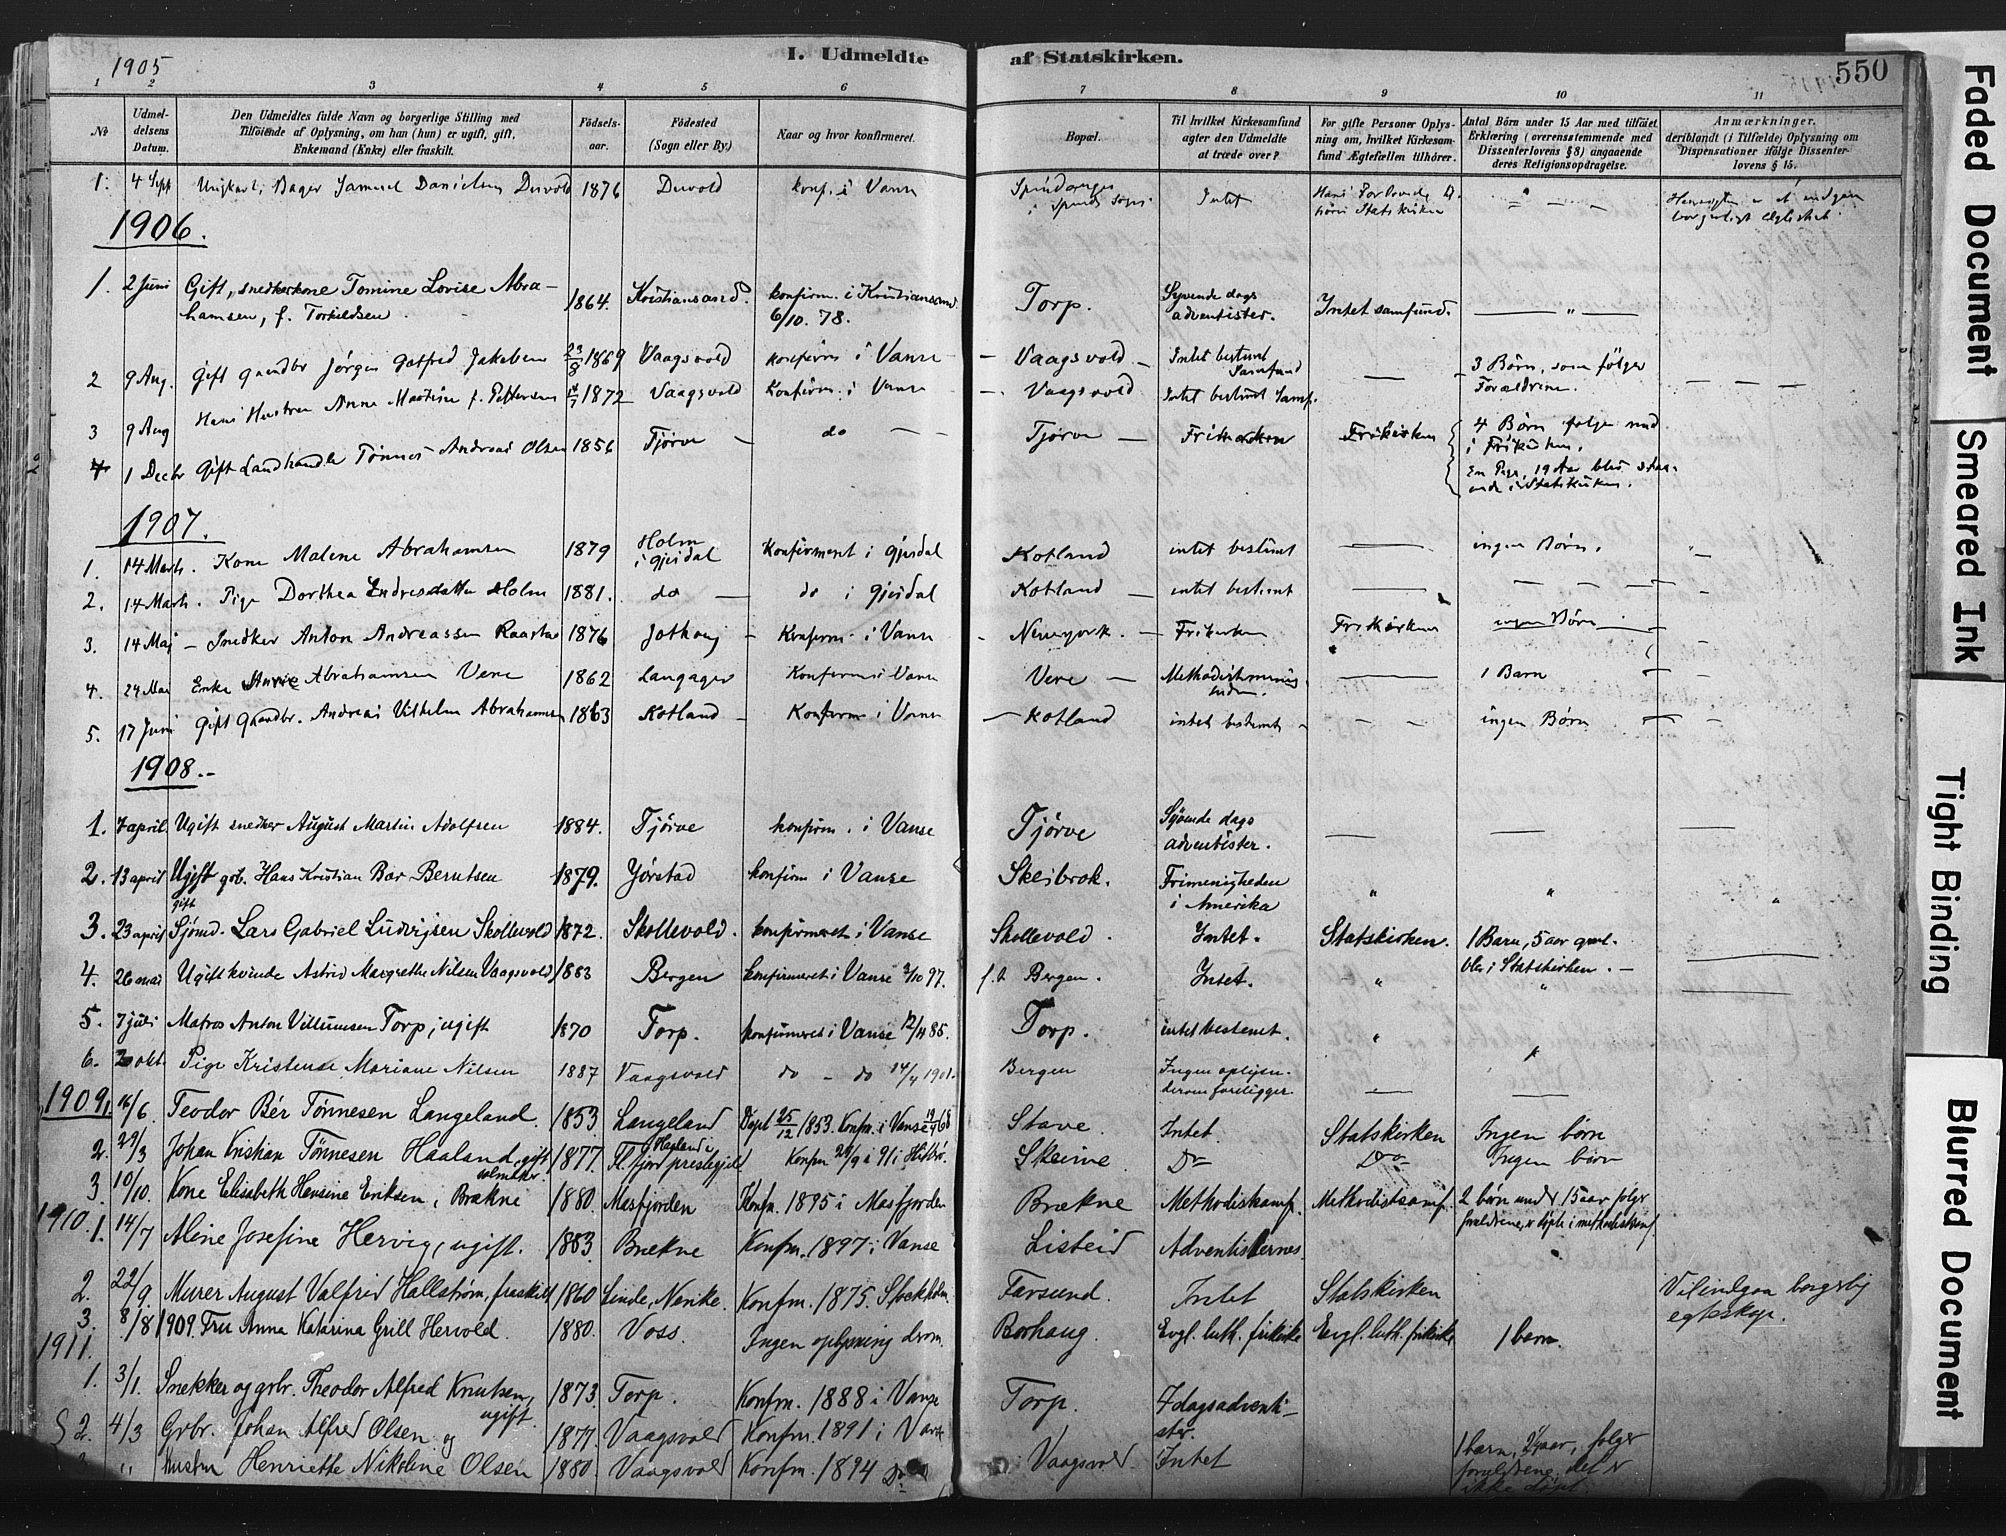 I. Udmeldte af Statskirken.
550
1905
1 2 3 4 5 6 7 8 9 10 11
No
Udmeldelsens Datum.
Den Udmeldtes fulde Navn og borgerlige Stilling med Tilföiende af Oplysning, om han (hun) er ugift, gift, Enkemand (Enke) eller fraskilt.
Födselsaar.
Födested (Sogn eller By.)
Naar og hvor konfirmeret.
Bopæl.
Til hvilket Kirkesamfund agter den Udmeldte at træde over?
For gifte Personer Oplysning om, hvilket Kirkesamfund Ægtefællen tilhörer.
Antal Börn under 15 Aar med tilföiet Erklæring (overensstemmende med Dissenterlovens § 8) angaaende deres Religionsopdragelse.
Anmærkninger, deriblandt (i Tilfælde) Oplysning om Dispensationer ifölge Dissenterlovens § 15.
1. 4 Sept Ungkarl, Bager Samuel Danielsen Duvold 1876 Duvold konf. i Vanse i Spinds Sogn Intet Statskirken
1906.
1. 2 Juni Gift, snedkerkone Tomine Lovise Abrahamsen, f. Torkildsen. 1864. Kristiansand. konfirm. i Kristiansand 6/10. 78. Torp. Syvende dags adventister. Intet samfund. — " —
2 9 Aug. Gift Gaardbr Jørgen Gotfred Jakobsen 1869 Vaagsvold konfirm i Vanse — Vaagsvold — Intet bestemt Samfund — 3 Børn, som følger Forældrene. — — —
3 9 Aug Hans Hustru Anne Martine f. Pettersen 1872 Vaagsvold Konfirm. i Vanse — Vaagsvold Intet bestemt Samf.
4 1 Decbr Gift Landhandler Tønnes Andreas Olsen 1856 Tjörve — do — — Tjörve — Frikirken Frikirken 4 Børn følger med i Frikirken. En Pige, 19 Aar blir staaende i Statskirken.
1907.
1. 14 Marts. Kone Malene Abrahamsen 1879 Holm i Gjesdal Konfirmeret i Gjesdal Kotland intet bestemt — ingen Børn.
2. 14 Marts. Pige Dorthea Endresdatter Holm 1881. do — do i Gjesdal Kotland — intet bestemt — — — —
3. 14 Maj — Snedker Anton Andreassen Raastad 1876 Jothaug — Konfirm. i Vanse — Newyork. — Frikirken Frikirken ingen Børn —
4. 24 Mai Enke Anne Abrahamsen Vere 1862 Langager Konfirm i Vanse Vere — — 1 Barn —
5. 17 Juni Gift Gaardbr. Andreas Vilhelm Abrahamsen 1863 Kotland — Konfirm i Vanse — Kotland intet bestemt — — — ingen Børn — —
1908.-
1. 7 april. Ugift snedker August Martin Adolfsen 1884. Tjörve konfirm. i Vanse Tjörve Syvende dags adventister. — — —
2. 13 april Ugift grb. Hans Kristian Bar Berntsen 1879. Jörstad konfirm i Vanse Skeibrok. Frimenigheden i Amerika " " "
3. 23 april gift Sjömd. Lars Gabriel Ludvigsen Skollevold 1872. Skollevold. konfirmeret i Vanse Skollevold. Intet. Statskirken. 1 Barn, 5 aar gml. blir i Statskirken. —
4. 26 mai Ugift kvinde Astrid Margrethe Nilsen Vaagsvold 1883 Bergen konfirmeret i Vanse 3/10 97. f.t. Bergen. Intet. " " —
5. 7 juli Matros Anton Villumsen Torp, ugift 1870 Torp. konfirmeret i Vanse 12/4 85. Torp. intet bestemt. "
6. okt. Pige Kristense Mariane Nilsen 1887 Vaagsvold do — do 14/4 1901. Bergen Ingen oplysn. derom foreligger. — —
1909. 16/6. Teodor Bér Tønnesen Langeland. 1853. Langeland Døpt 25/12 1853. Konfm. i Vanse 68 Stave. Intet. Statskirken Ingen børn
2. 29/3 Johan Kristian Tønnesen Haaland, gift 1877. Haaland i Fl. fjord prestegjeld Skeime. Do Do Ingen børn
3. 10/10. Kone Elisabeth Hensine Eriksen, Brækne 1880. Masfjorden Konfm. 1895 i Masfjorden Brækne Methodistsamf. Methodistsamf. 2 børn under 15 aar følger forældrene, er døpte i methodistsamf.
1910. 1. 14/7 Aline Josefine Hervig, ugift. 1883. Brækne Konfm. 1897 i Vanse Listeid Adventisternes.
2. 22/9. Murer August Valfrid Hallstrøm, fraskilt 1860 Linde, Nerike. Konfm. 1875. Stockholm. Farsund. Intet Statskirken Vil indgaa borgerlig egteskap.
3. 8/8 1909. Fru Anna Katarina Grill Hervold. 1880. Voss. Ingen oplysning derom. Borhaug. Evgl. luth. frikirke Evgl. luth. frikirke 1 barn.
1911.
1. 3/1. Snekker og grbr. Theodor Alfred Knutsen, ugift. 1873. Torp. Konfm. 1888 i Vanse Torp. 7dagsadventister.
2. 4/3 Grbr. Johan Alfred Olsen og 1877. Vaagsvold Konfm. 1891 i Vanse
" Hustru Henriette Nikoline Olsen 1880. Vaagsvold Konfm. 1894 Do Vaagsvold Intet 1 barn, aar, følger forældrene, det er ikke døpt.
Faded Document
Smeared Ink
Tight Binding
Blurred Document